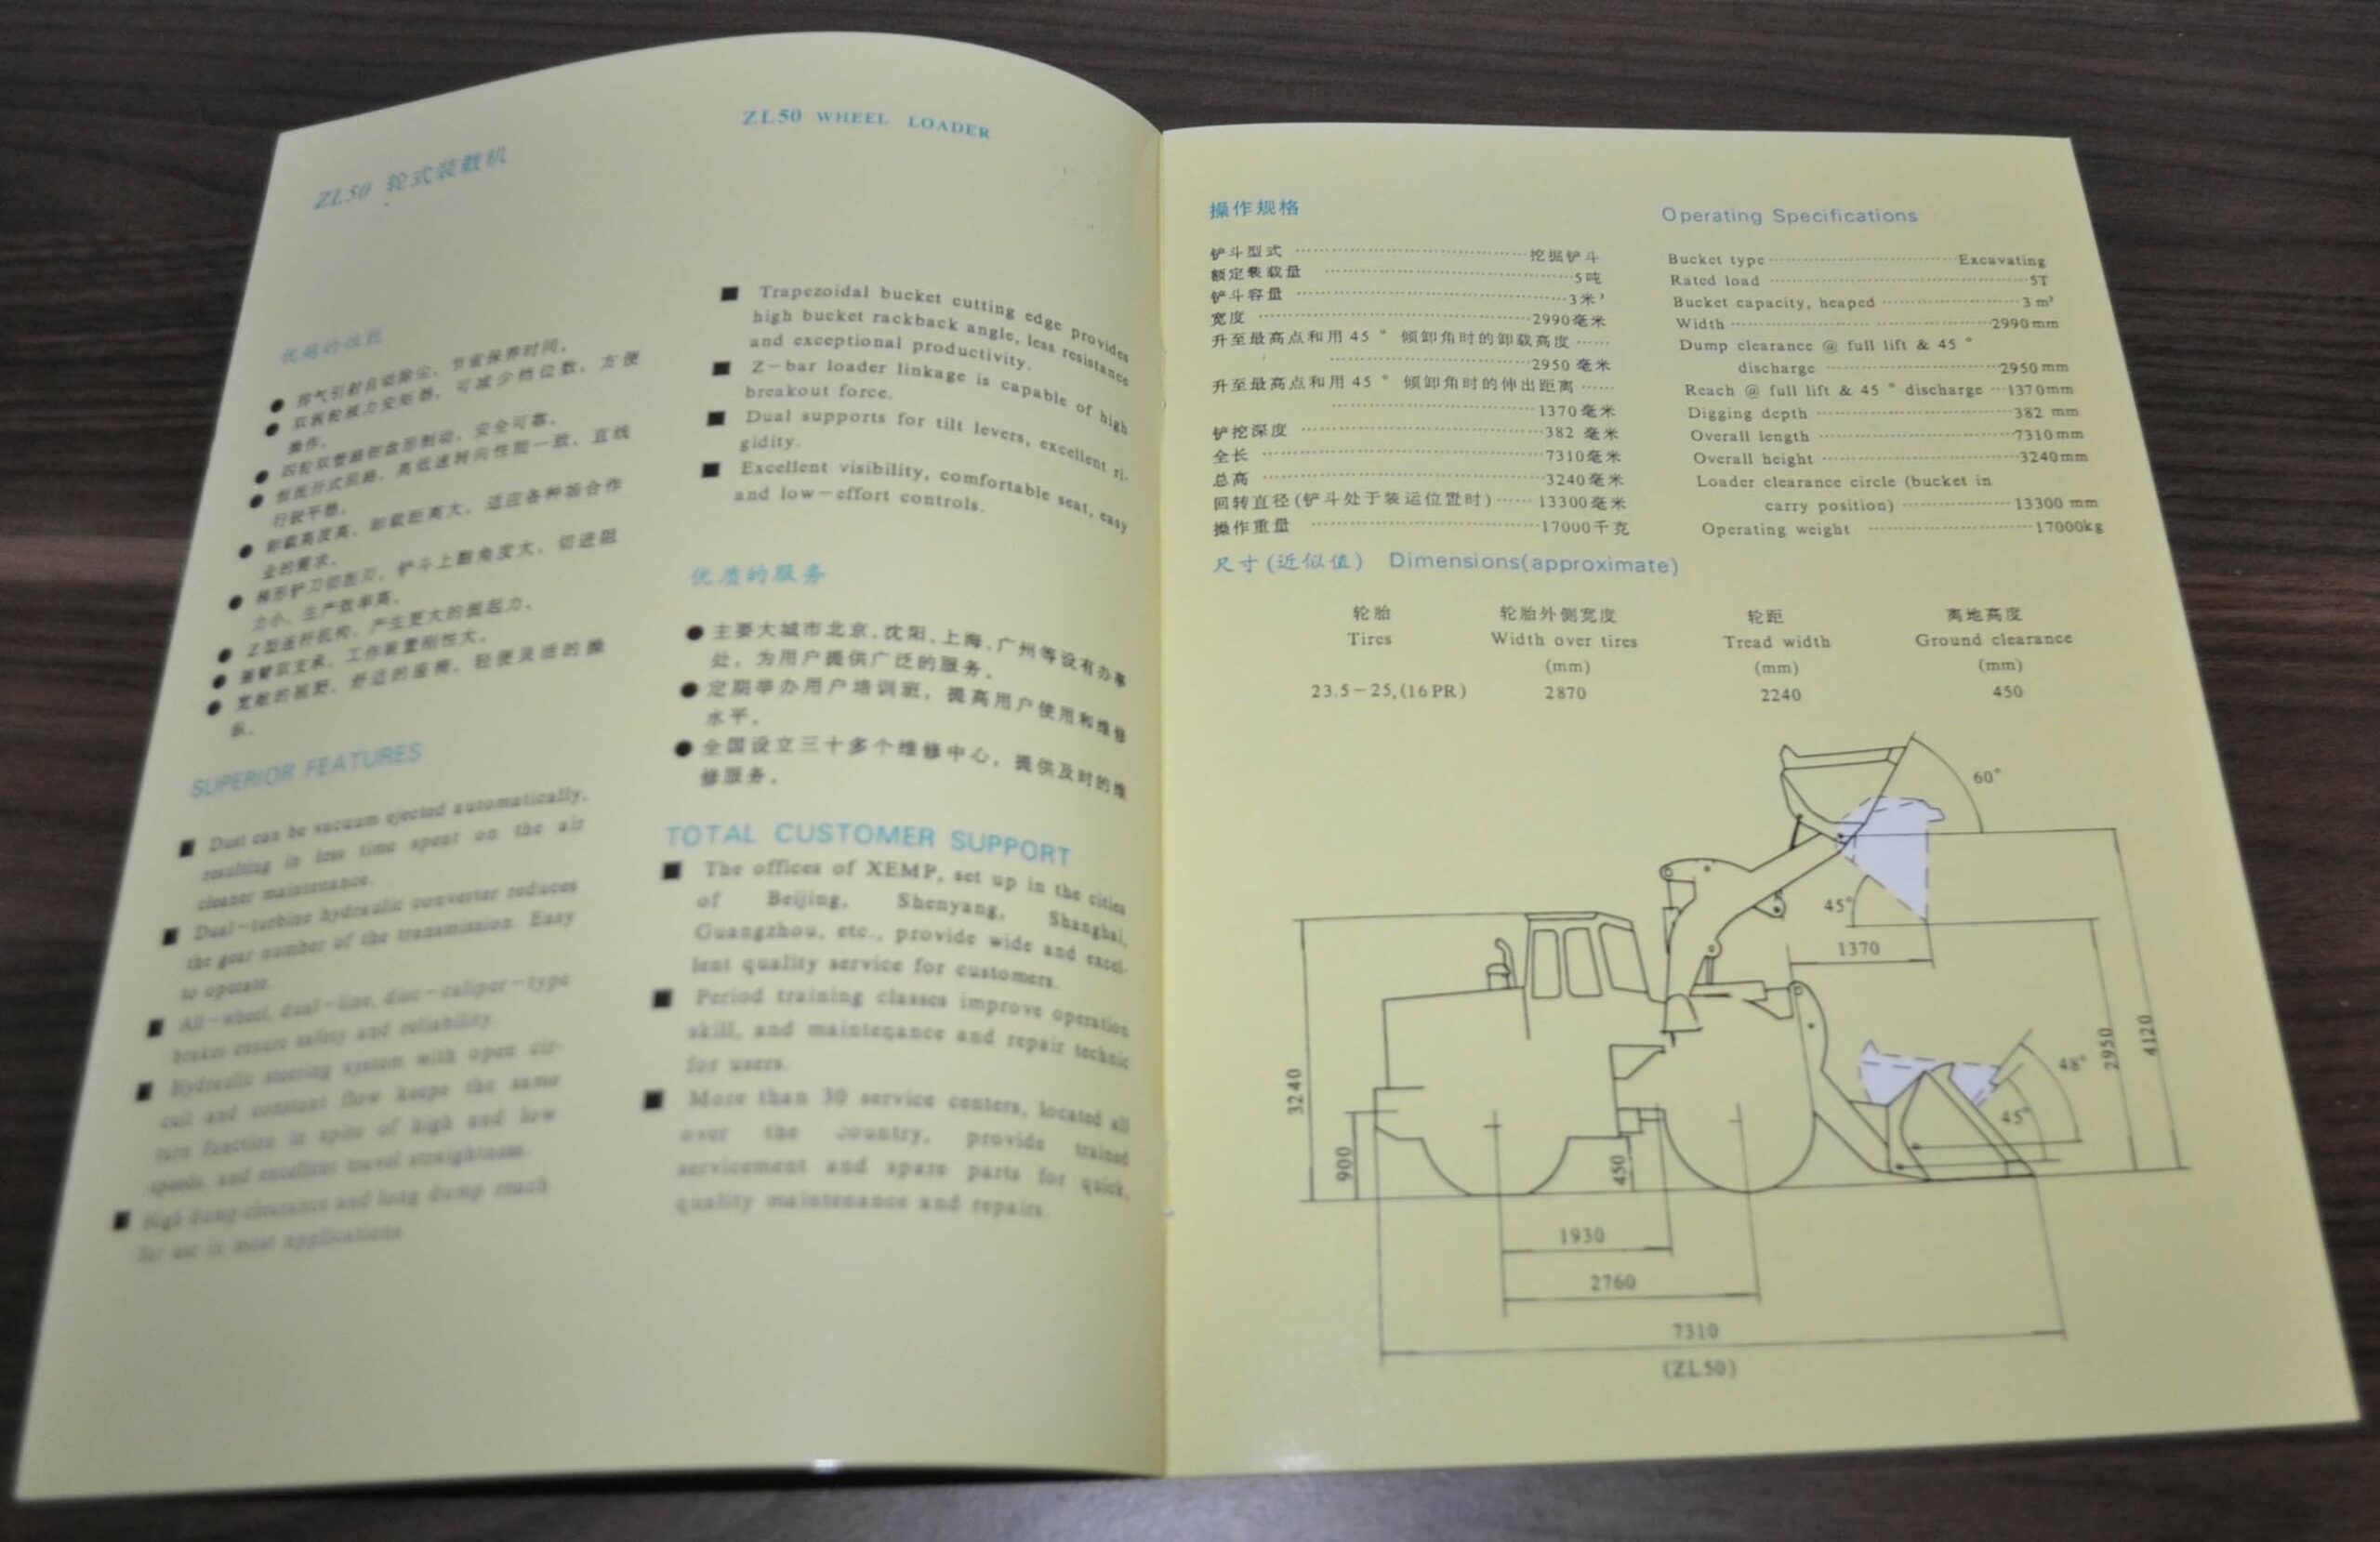 ZL50 轮式装载机
优越的性能
● 排气引射自动除尘，节省保养时间。
● 双涡轮液力变矩器，可减少档位数，方便
操作。
● 四轮双管路钳盘形制动，安全可靠。
行驶平稳。
● 卸载高度高，卸载距离大，适应各种场合作
业的要求。
● 梯形铲刀切削刃，铲斗上翻角度大，切进阻
力小，生产效率高。
● Z型连杆机构，产生更大的掘起力。
● 摇臂双支承，工作装置刚性大。
● 宽敞的视野，舒适的座椅，轻便灵活的操
纵。
SUPERIOR FEATURES
■ Dust can be vacuum ejected automatically,
resulting in less time spent on the air
cleaner maintenance.
■ Dual-turbine hydraulic converter reduces
the gear number of the transmission. Easy
to operate.
■ All-wheel, dual-line, disc-caliper-type
brakes ensure safety and reliability.
■ Hydraulic steering system with open cir-
cuit and constant flow keeps the same
turn function in spite of high and low
speeds, and excellent travel straightness.
■ High dump clearance and long dump reach
for use in most applications.
ZL50 WHEEL LOADER
■ Trapezoidal bucket cutting edge provides
high bucket rackback angle, less resistance
and exceptional productivity.
■ Z-bar loader linkage is capable of high
breakout force.
■ Dual supports for tilt levers, excellent ri-
gidity.
■ Excellent visibility, comfortable seat, easy
and low-effort controls.
优质的服务
● 主要大城市北京、沈阳、上海、广州等设有办事
处，为用户提供广泛的服务。
● 定期举办用户培训班，提高用户使用和维修
水平。
● 全国设立三十多个维修中心，提供及时的维
修服务。
TOTAL CUSTOMER SUPPORT
■ The offices of XEMP, set up in the cities
of Beijing, Shenyang, Shanghai,
Guangzhou, etc., provide wide and excel-
lent quality service for customers.
■ Period training classes improve operation
skill, and maintenance and repair technic
for users.
■ More than 30 service centers, located all
over the country, provide trained
servicement and spare parts for quick,
quality maintenance and repairs.
操作规格
铲斗型式 ………… 挖掘铲斗
额定装载量 ………… 5吨
铲斗容量 ………… 3米³
宽度 ………… 2990毫米
升至最高点和用 45 ° 倾卸角时的卸载高度 ……
………… 2950 毫米
升至最高点和用 45 ° 倾卸角时的伸出距离 ……
………… 1370毫米
铲挖深度 ………… 382 毫米
全长 ………… 7310毫米
总高 ………… 3240毫米
回转直径(铲斗处于装运位置时) …… 13300毫米
操作重量 ………… 17000千克
Operating Specifications
Bucket type ………… Excavating
Rated load ………… 5T
Bucket capacity, heaped ………… 3 m³
Width ………… 2990mm
Dump clearance @ full lift & 45 °
discharge ………… 2950mm
Reach @ full lift & 45 ° discharge … 1370mm
Digging depth ………… 382 mm
Overall length ………… 7310mm
Overall height ………… 3240mm
Loader clearance circle (bucket in
carry position) ………… 13300 mm
Operating weight ………… 17000kg
尺寸(近似值) Dimensions(approximate)
轮胎 轮胎外侧宽度 轮距 离地高度
Tires Width over tires Tread width Ground clearance
(mm) (mm) (mm)
23.5-25,(16PR) 2870 2240 450
60°
45°
1370
48°
45°
2950
4120
3240
900
450
1930
2760
7310
(ZL50)